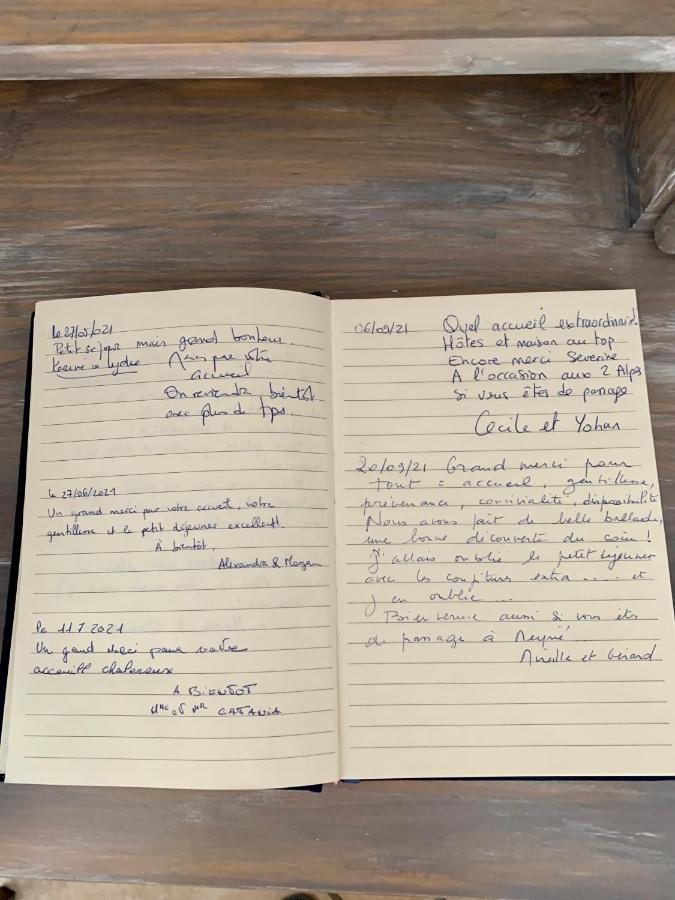 le 27/05/2021
Petit séjour mais grand bonheur
Merci pour votre
accueil
On reviendra bientôt
avec plus de tps.
le 27/06/2021
Un grand merci pour votre accueil, votre
gentillesse et le petit déjeuner excellent!
À bientôt,
Alexandra & Morgan
le 11.7.2021
Un grand merci pour votre
accueill chalereux
A BIENTOT
Mme et MR CATANIA
06/09/21 Quel accueil extraordinaire!
Hôtes et maison au top
Encore merci Severine
A l'occasion aux 2 Alpes
si vous êtes de passage
Cecile et Yohan
20/09/21 Grand merci pour
tout : accueil, gentillesse,
prévenance, convivialité, disponibilité
Nous avons fait de belle ballades,
une bonne découverte du coin!
J'allais oublié le petit déjeuner
avec les confitures extra ..... et
j'en oublie ....
Bienvenue aussi si vous êtes
de passage à
Mireille et Gérard